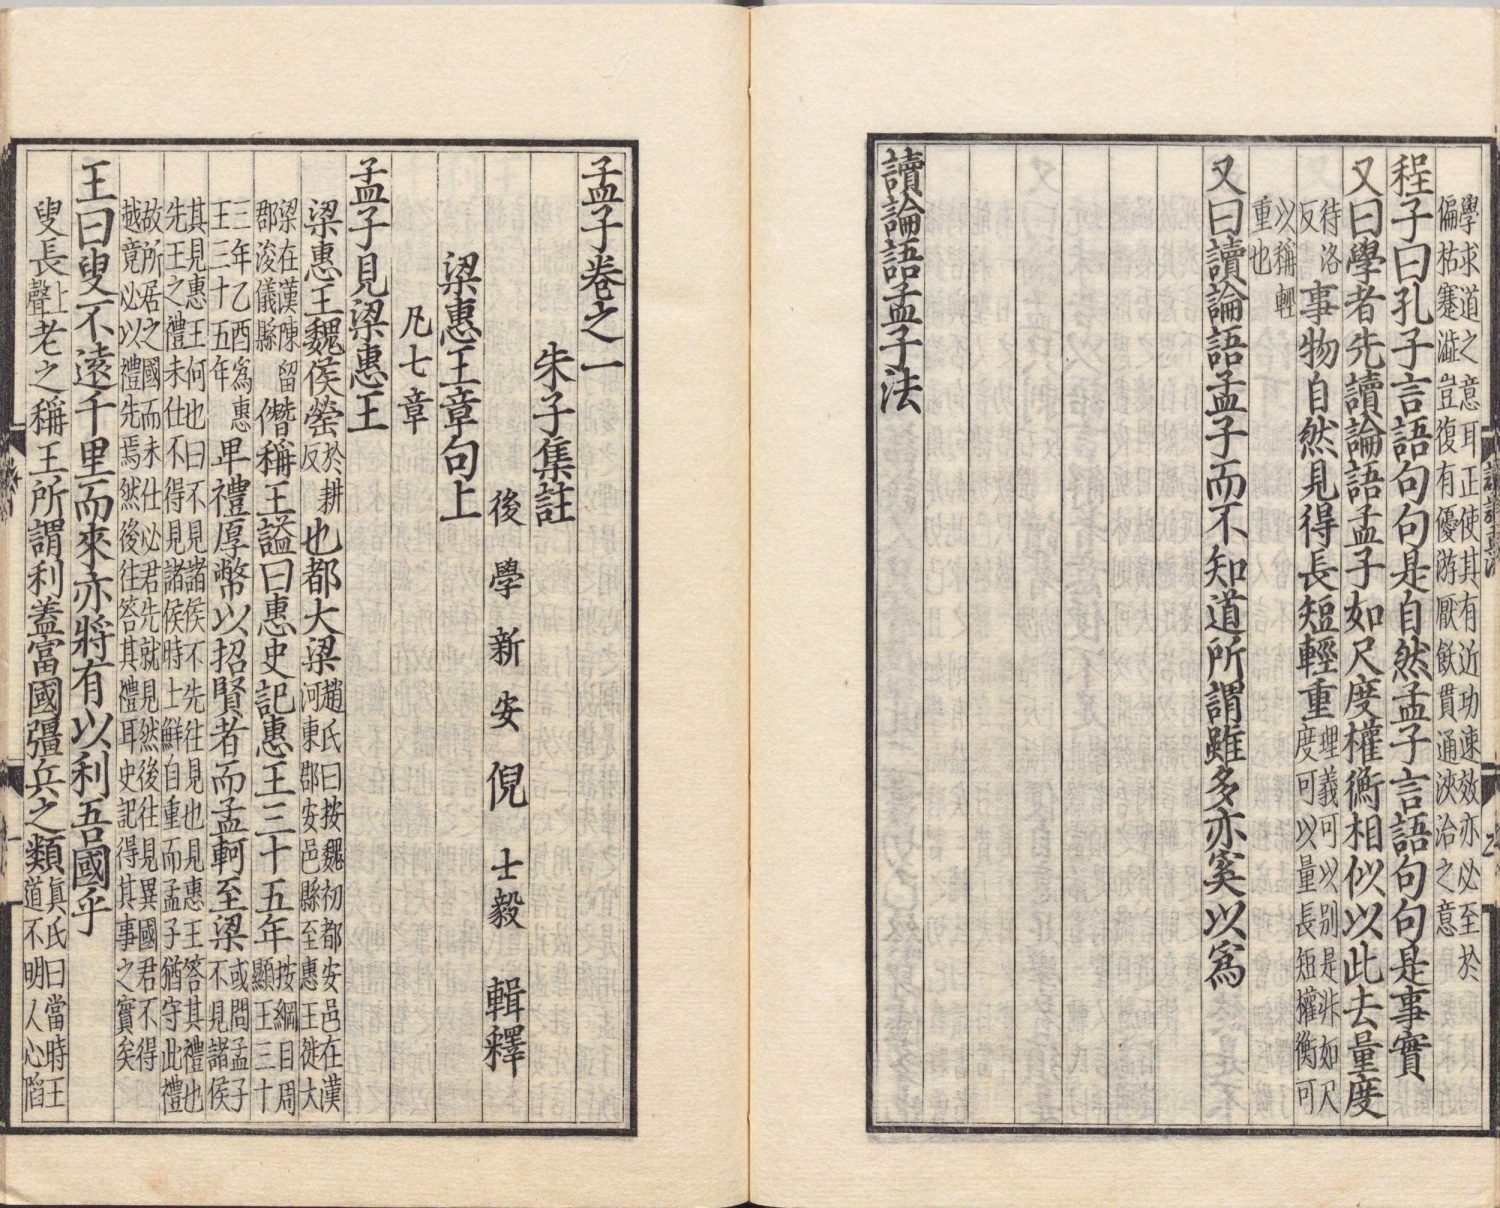 學求道之意耳正使其有近功速效亦必至於
偏枯蹇澁豈復有優游厭飫貫通浹洽之意
程子曰孔子言語句句是自然孟子言語句句是事實
又曰學者先讀論語孟子如尺度權衡相似以此去量度
待洛反事物自然見得長短輕重理義可以别是非如尺度可以量長短權衡可
以稱輕重也
又曰讀論語孟子而不知道所謂雖多亦奚以爲
讀論語孟子法
孟子卷之一
朱子集註
後學新安倪士毅輯釋
梁惠王章句上
凡七章
孟子見梁惠王
梁惠王魏侯罃於耕反也都大梁趙氏曰按魏初都安邑在漢河東郡安邑縣至惠王徙大
梁在漢陳留郡浚儀縣僭稱王謚曰惠史記惠王三十五年按綱目周顯王三十
三年乙酉爲惠王三十五年卑禮厚幣以招賢者而孟軻至梁或問孟子不見諸侯
其見惠王何也曰不見諸侯不先往見也見惠王答其禮也
先王之禮未仕不得見諸侯時士鮮自重而孟子猶守此禮
故所居之國而未仕必君先就見然後往見異國君不得
越竟必以禮先焉然後往答其禮耳史記得其事之實矣
王曰叟不遠千里而來亦將有以利吾國乎
叟長上聲老之稱王所謂利蓋富國彊兵之類真氏曰當時王道不明人心陷